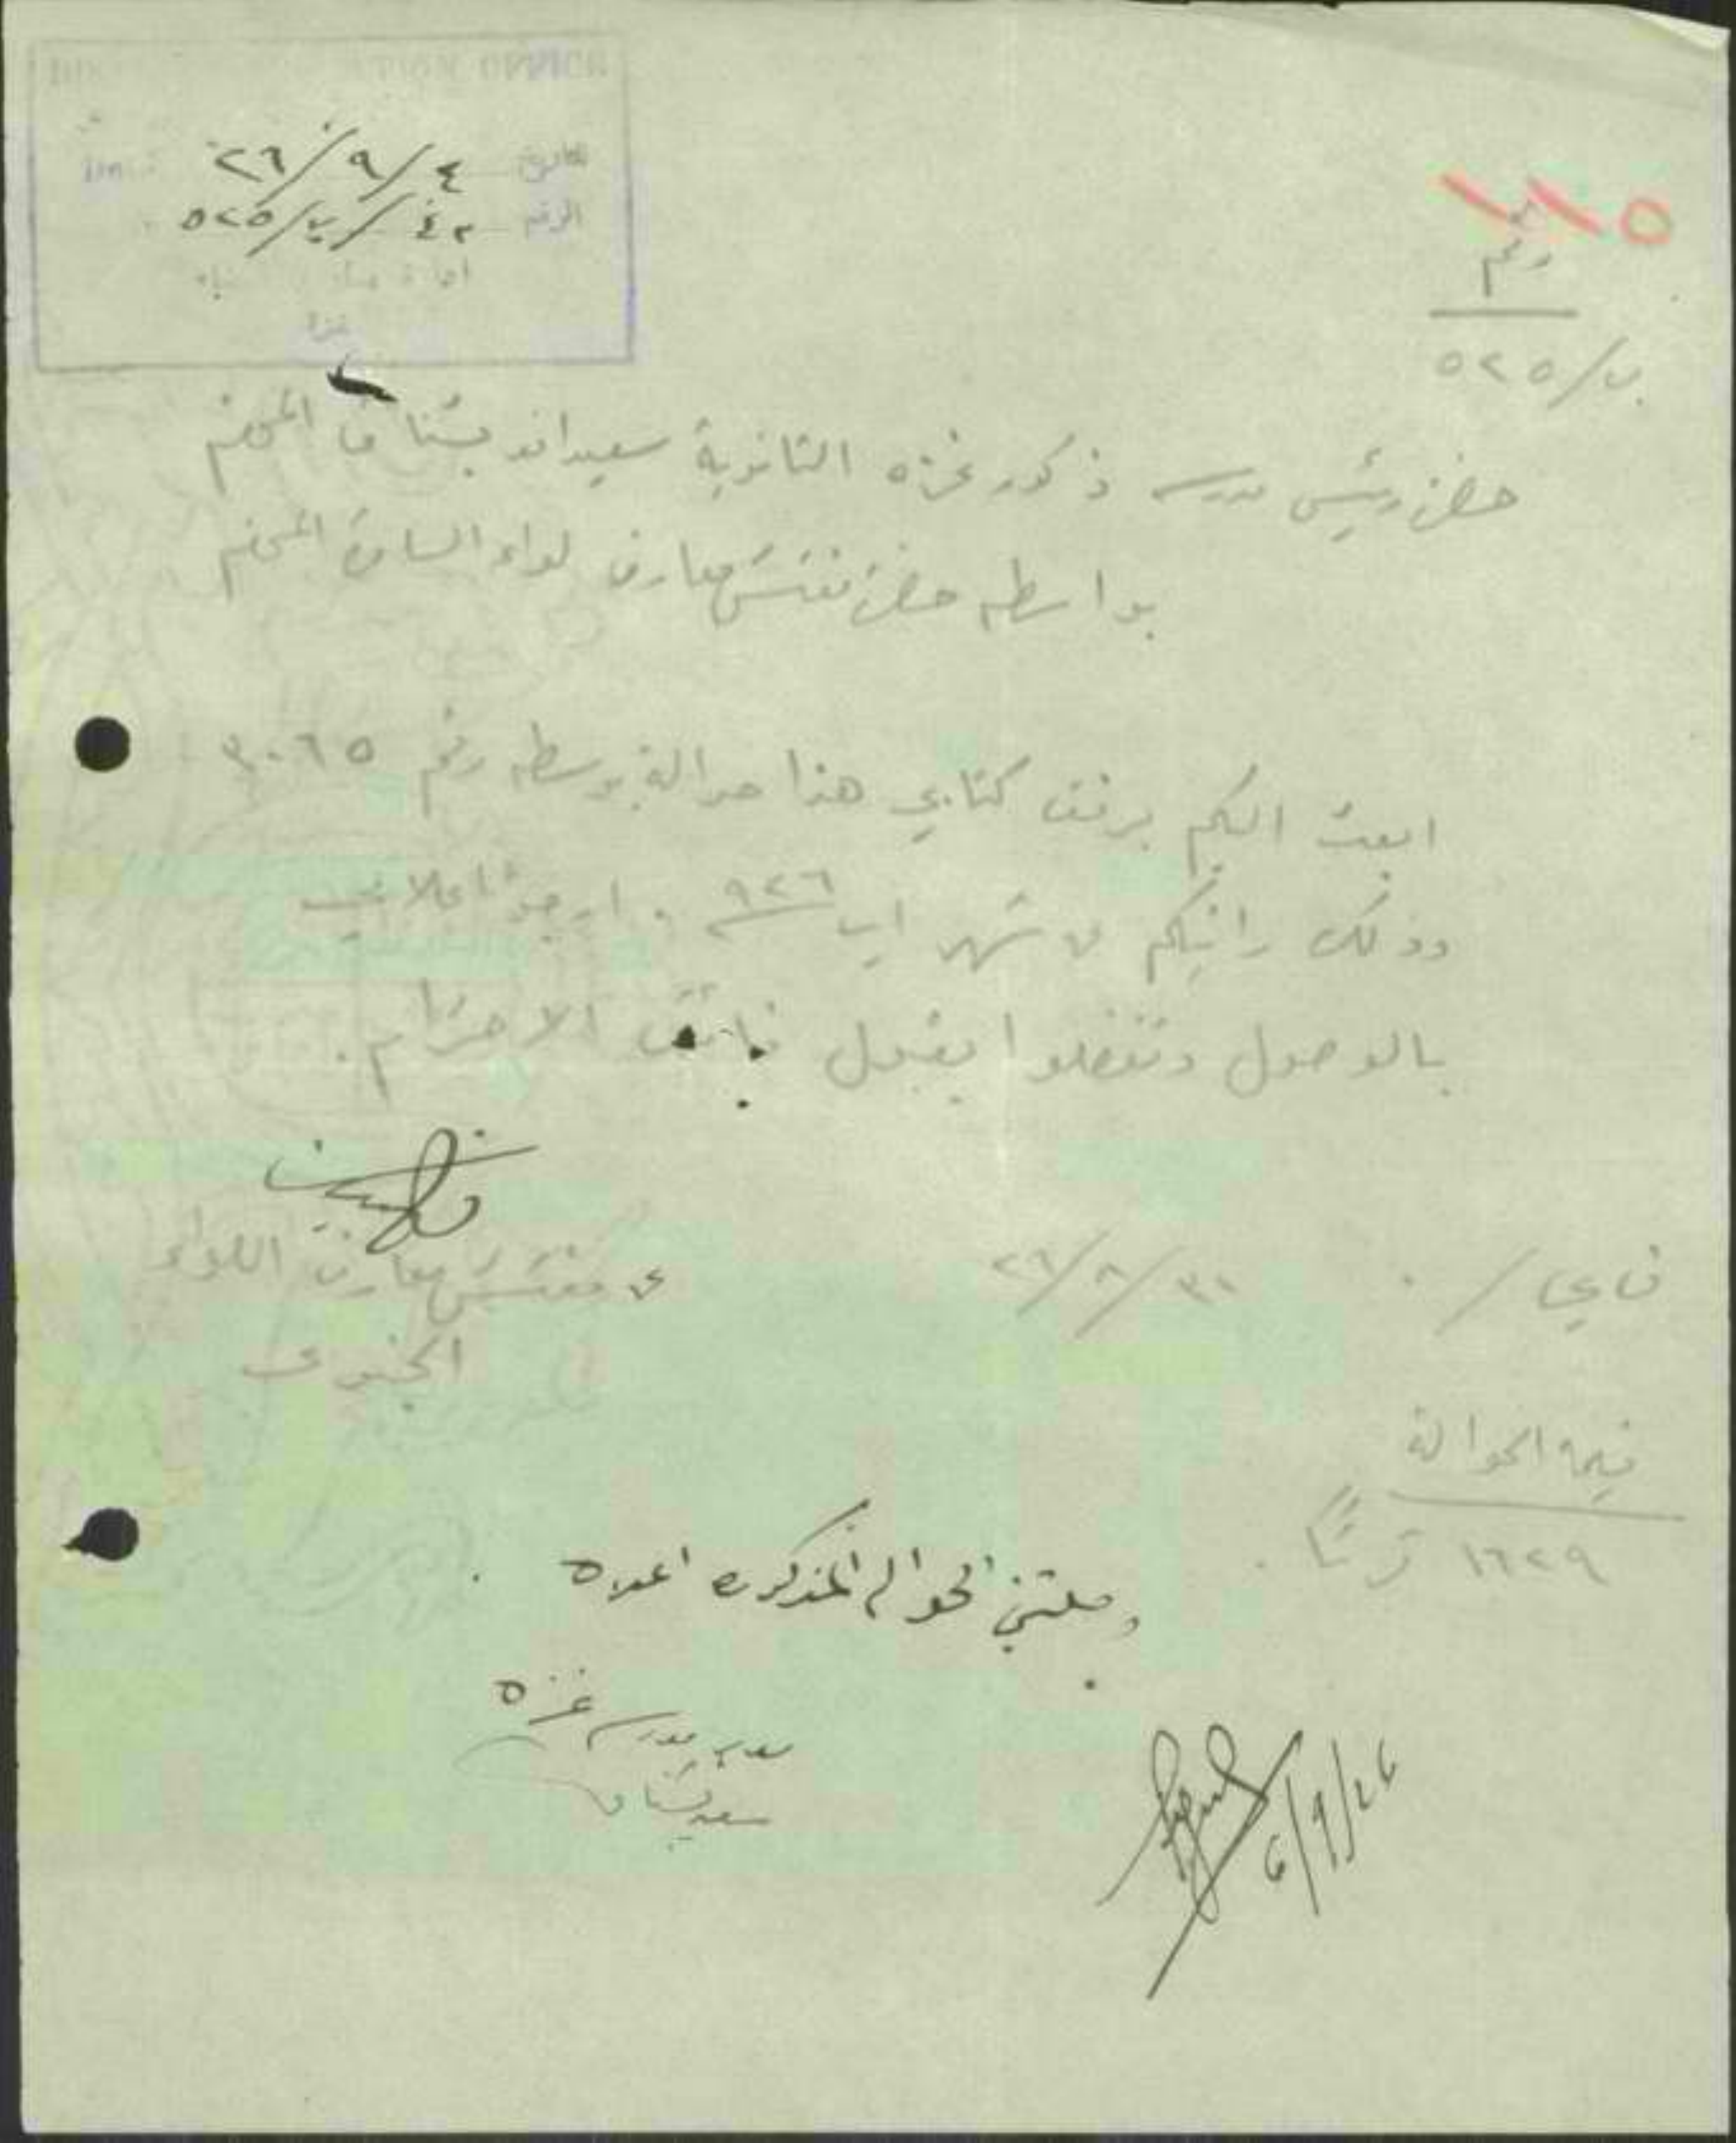 OFFICE
التاريخ ٤/٩/٢٦
الرقم ٤٢/ب/٥٢٥
غزة
رقم
ب/٥٢٥
حضرة رئيس مدرسة ذكور غزه الثانوية سعيد افندي بسناق المحترم
بواسطة حضرة مفتش معارف لواء السامرة المحترم
ابعث اليكم برفق كتابي هذا حوالة بوسطه رقم ٣٠٦٥
وذلك راتبكم عن شهر اب ٩٢٦ . ارجو اعلامي
بالوصول وتفضلوا بقبول فائق الاحترام .
ع مفتش معارف اللواء
الجنوبي
في / ٣١/٨/٢٦
قيمة الحوالة
١٦٢٩ قرشاً .
وصلتني الحواله المذكوره اعلاه .
مدير مدرسة غزه
سعيد بسناق
6/9/26